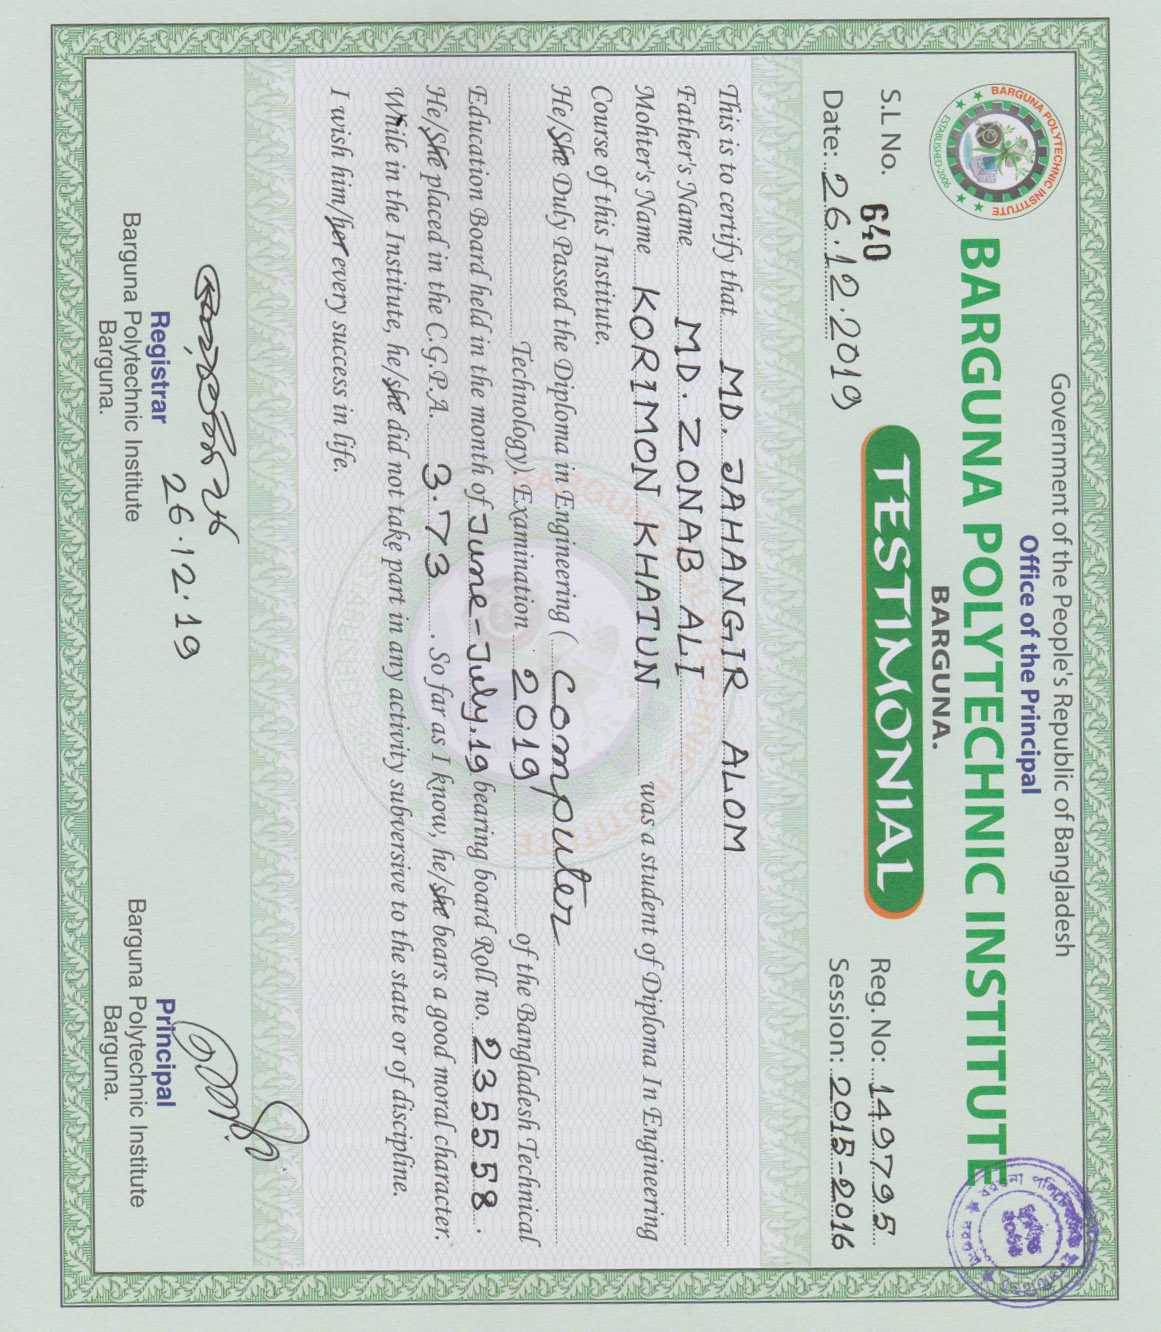 Government of the People's Republic of Bangladesh
Office of the Principal
BARGUNA POLYTECHNIC INSTITUTE
BARGUNA.
TESTIMONIAL
BARGUNA POLYTECHNIC INSTITUTE
ESTABLISHED-2006
S.L No. 640
Date: 26.12.2019
Reg. No: 149795
Session: 2015-2016
This is to certify that MD. JAHANGIR ALOM
Father's Name MD. ZONAB ALI
Mohter's Name KORIMON KHATUN was a student of Diploma In Engineering
Course of this Institute.
He/She Duly Passed the Diploma in Engineering ( Computer
Technology). Examination 2019 of the Bangladesh Technical
Education Board held in the month of June-July.19 bearing board Roll no. 235558 .
He/She placed in the C.G.P.A. 3.73 . So far as I know, he/she bears a good moral character.
While in the Institute, he/she did not take part in any activity subversive to the state or of discipline.
I wish him/her every success in life.
BARGUNA POLYTECHNIC INSTITUTE
ESTABLISHED-2006
26.12.19
Registrar
Barguna Polytechnic Institute
Barguna.
Principal
Barguna Polytechnic Institute
Barguna.